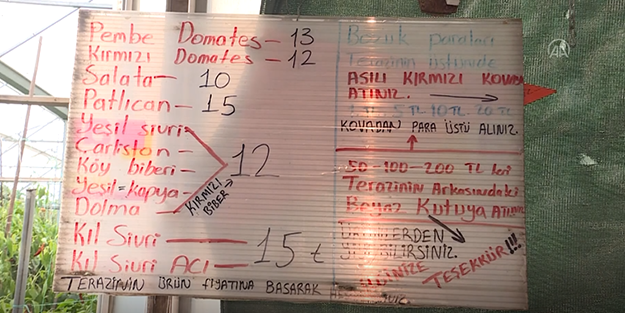 Pembe Domates - 13
Kırmızı Domates - 12
Salata - 10
Patlıcan - 15
Yeşil sivri
Çarliston -
Köy biberi -
Yeşil = Kapya -
Dolma -
KIRMIZI
BİBER →
12
Kıl Sivri - 15 ₺
Kıl Sivri ACI -
TERAZİNİN ÜRÜN FİYATINA BASARAK
Bozuk paraları
Terazinin üstünde
ASILI KIRMIZI KOVAYA
ATINIZ. →
5 TL 10 TL 20 TL
KOVADAN PARA ÜSTÜ ALINIZ.
50-100-200 TL leri
Terazinin Arkasındaki
Beyaz Kutuya ATINIZ
TEŞEKKÜR!!!
AA